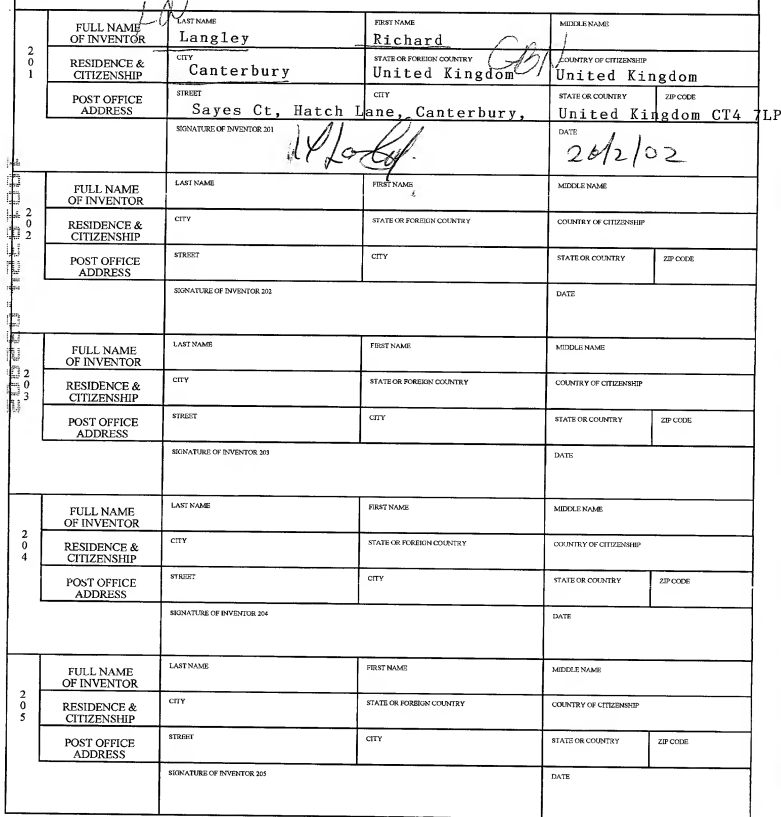 FULL NAME OF INVENTOR LAST NAME Langley FIRST NAME Richard MIDDLE NAME
201 RESIDENCE & CITIZENSHIP CITY Canterbury STATE OR FOREIGN COUNTRY United Kingdom GBN COUNTRY OF CITIZENSHIP United Kingdom
POST OFFICE ADDRESS STREET Sayes Ct, Hatch Lane, Canterbury, CITY STATE OR COUNTRY United Kingdom ZIP CODE CT4 7LP
SIGNATURE OF INVENTOR 201 DATE 26/2/02
FULL NAME OF INVENTOR LAST NAME FIRST NAME MIDDLE NAME
202 RESIDENCE & CITIZENSHIP CITY STATE OR FOREIGN COUNTRY COUNTRY OF CITIZENSHIP
POST OFFICE ADDRESS STREET CITY STATE OR COUNTRY ZIP CODE
SIGNATURE OF INVENTOR 202 DATE
FULL NAME OF INVENTOR LAST NAME FIRST NAME MIDDLE NAME
203 RESIDENCE & CITIZENSHIP CITY STATE OR FOREIGN COUNTRY COUNTRY OF CITIZENSHIP
POST OFFICE ADDRESS STREET CITY STATE OR COUNTRY ZIP CODE
SIGNATURE OF INVENTOR 203 DATE
FULL NAME OF INVENTOR LAST NAME FIRST NAME MIDDLE NAME
204 RESIDENCE & CITIZENSHIP CITY STATE OR FOREIGN COUNTRY COUNTRY OF CITIZENSHIP
POST OFFICE ADDRESS STREET CITY STATE OR COUNTRY ZIP CODE
SIGNATURE OF INVENTOR 204 DATE
FULL NAME OF INVENTOR LAST NAME FIRST NAME MIDDLE NAME
205 RESIDENCE & CITIZENSHIP CITY STATE OR FOREIGN COUNTRY COUNTRY OF CITIZENSHIP
POST OFFICE ADDRESS STREET CITY STATE OR COUNTRY ZIP CODE
SIGNATURE OF INVENTOR 205 DATE